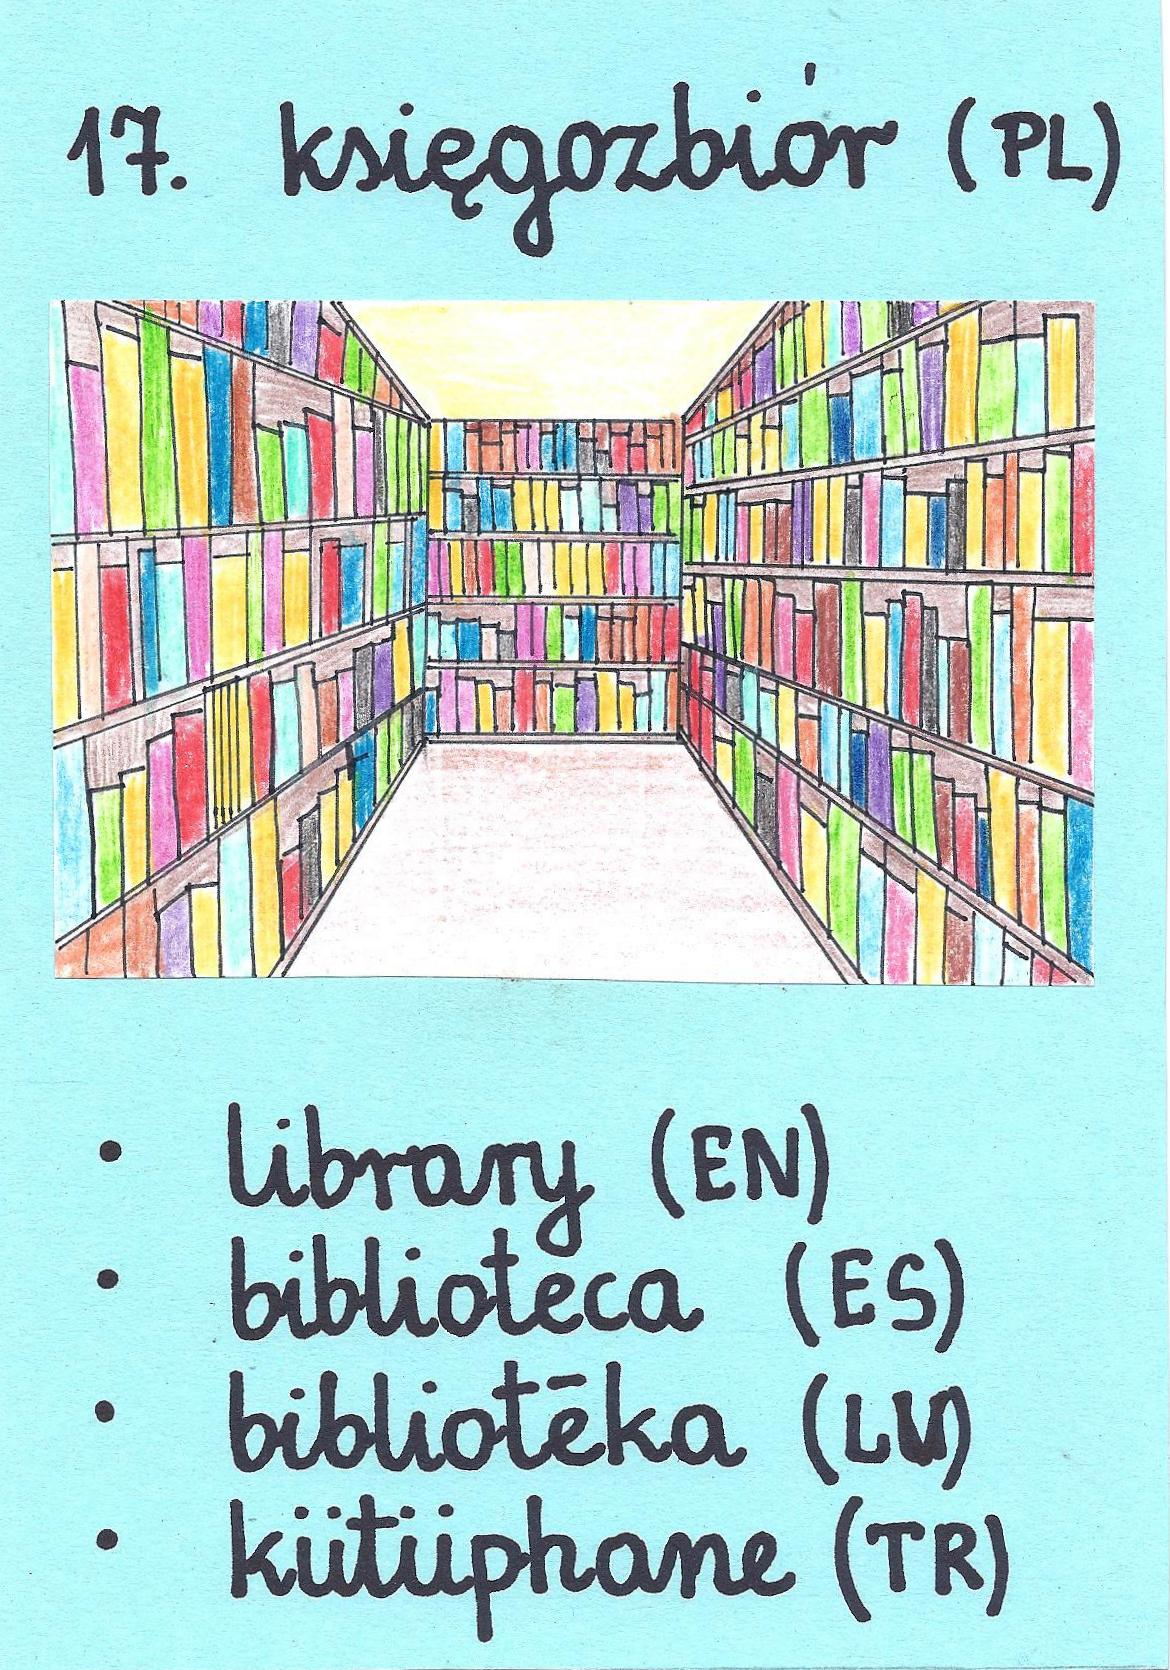 17. księgozbiór (PL)
• library (EN)
• biblioteca (ES)
• bibliotēka (LV)
• kütüphane (TR)